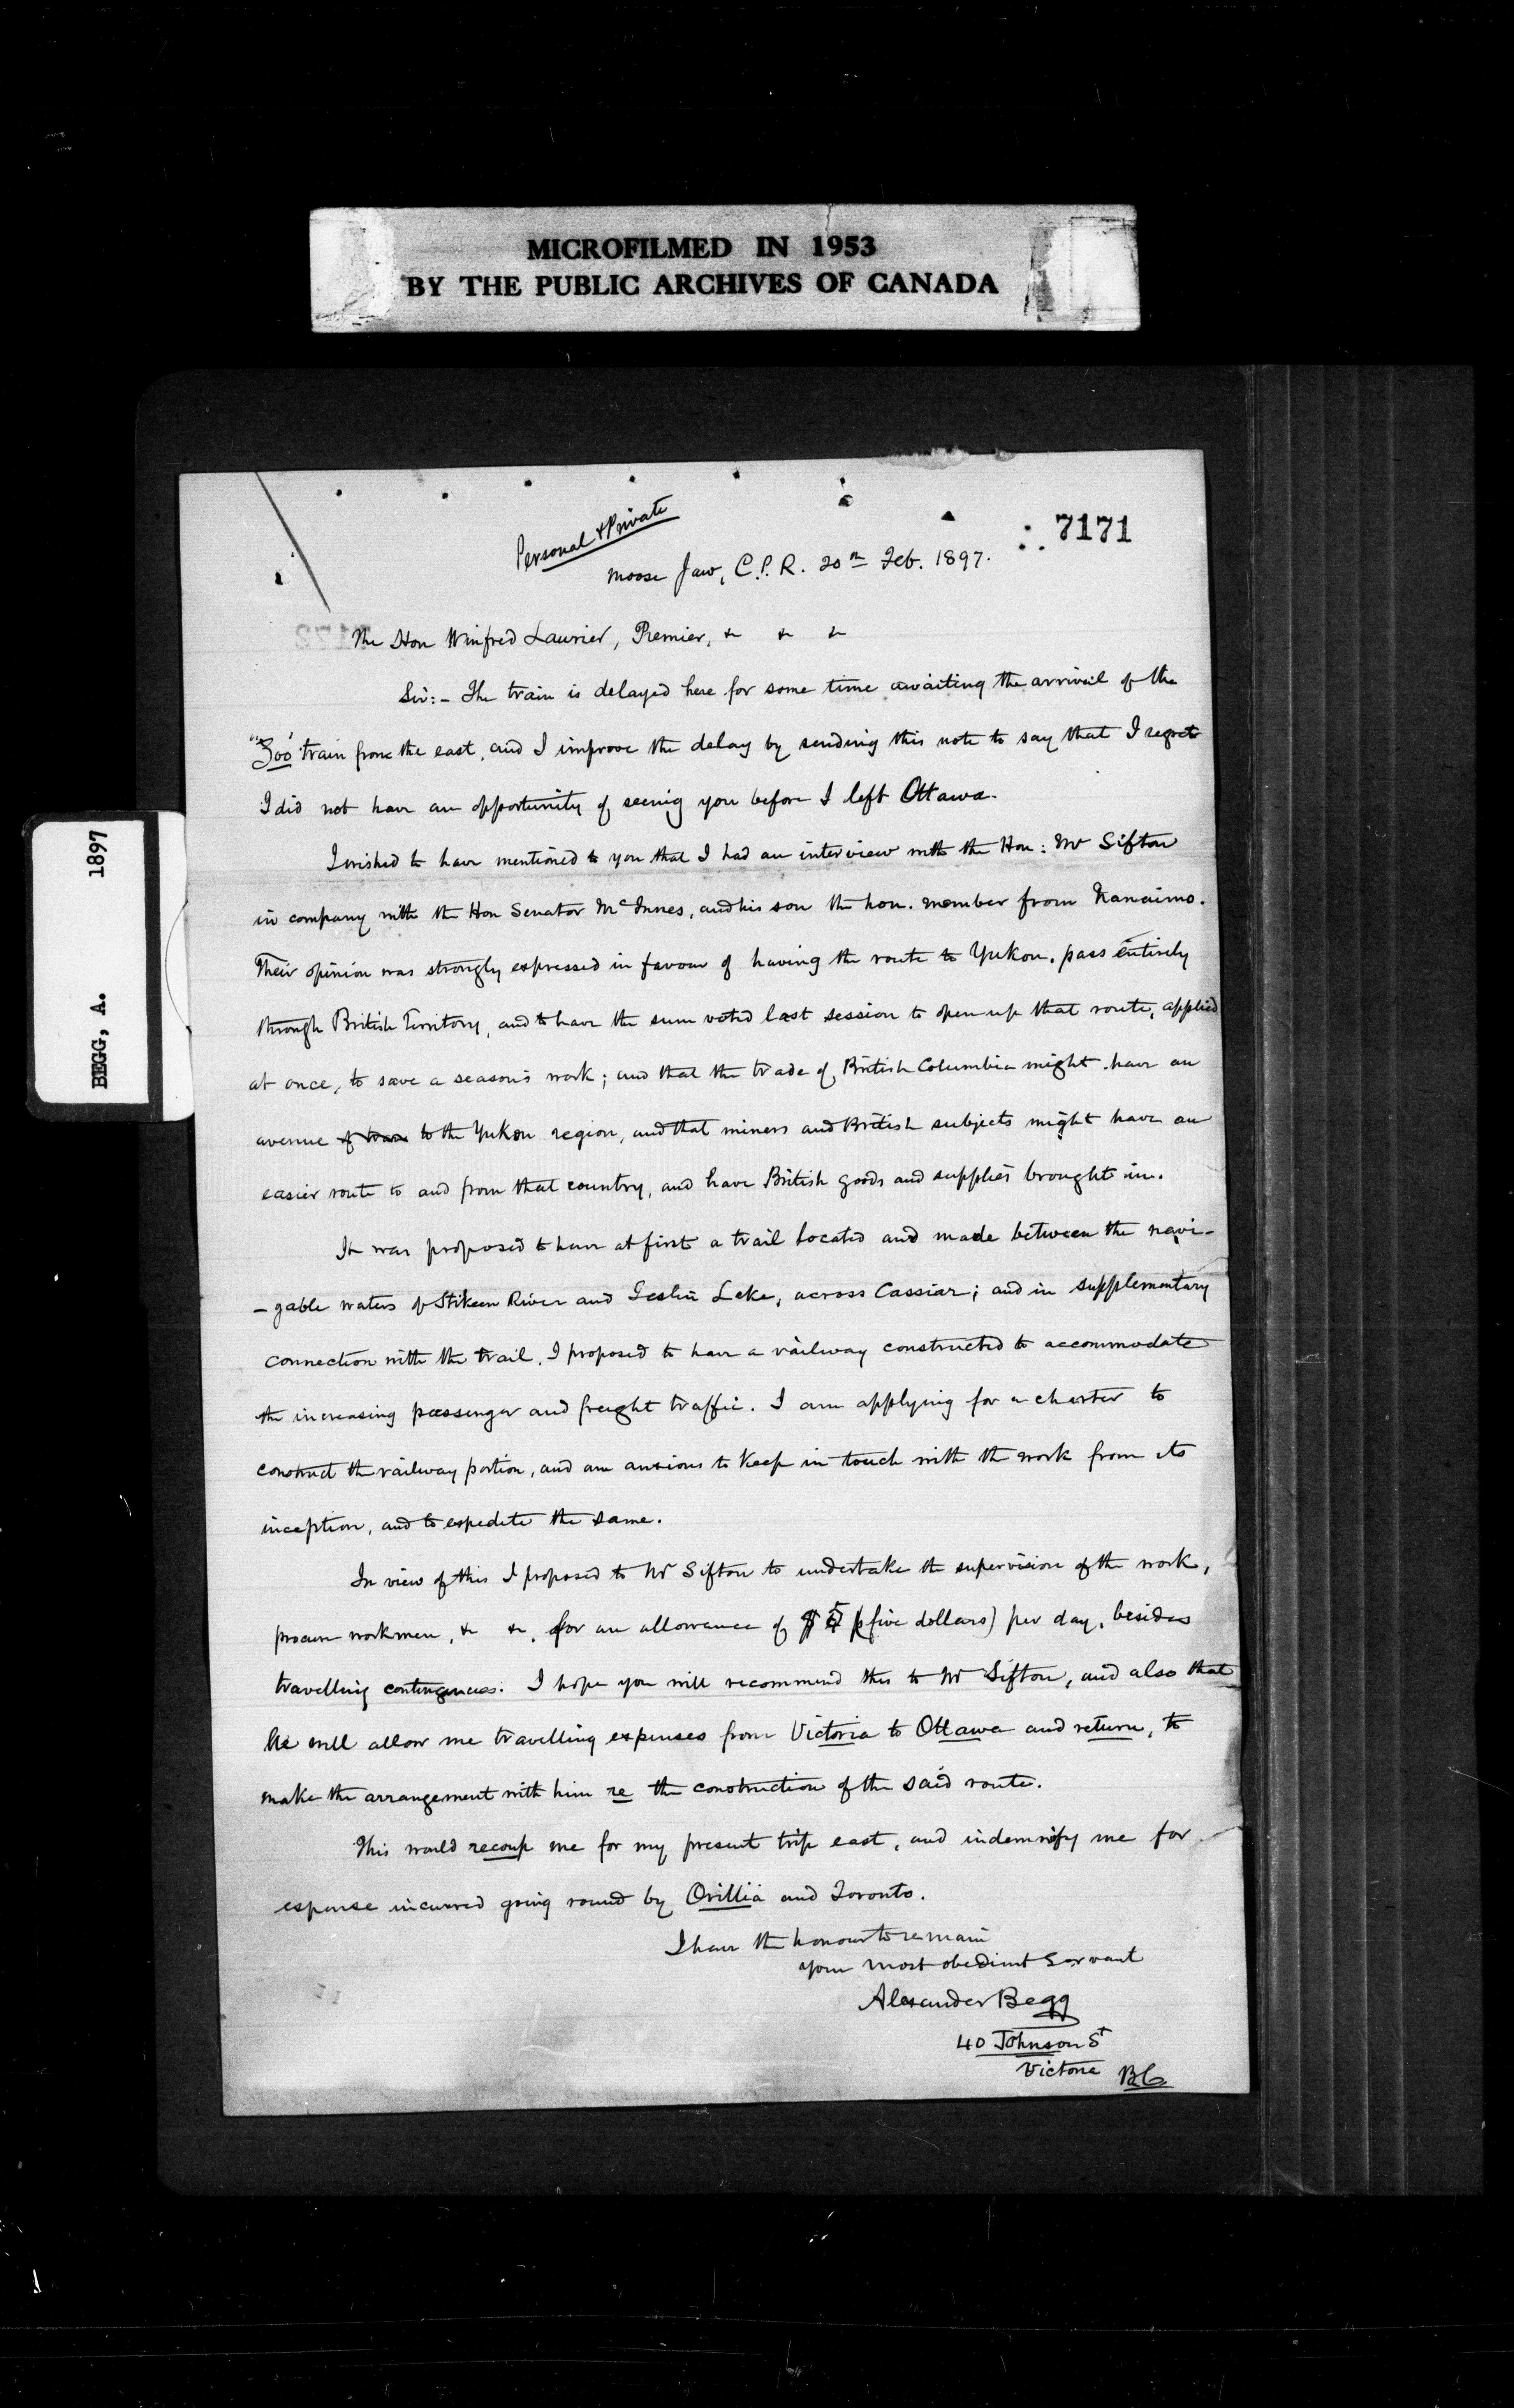 MICROFILMED IN 1953
BY THE PUBLIC ARCHIVES OF CANADA
BEGG, A. 1897
7171
Personal & Private
Moose Jaw, C.P.R. 20th Feb. 1897.
The Hon Winfred Laurier, Premier, & & &
Sir:- The train is delayed here for some time awaiting the arrival of the
"Soo" train from the east, and I improve the delay by sending this note to say that I regret
I did not have an opportunity of seeing you before I left Ottawa.
I wished to have mentioned to you that I had an interview with the Hon: Mr Sifton
in company with the Hon Senator McInnes, and his son the hon. member from Nanaimo.
Their opinion was strongly expressed in favour of having the route to Yukon, pass entirely
through British Territory, and to have the sum voted last session to open up that route, applied
at once, to save a season's work; and that the trade of British Columbia might have an
avenue of trade to the Yukon region, and that miners and British subjects might have an
easier route to and from that country, and have British goods and supplies brought in.
It was proposed to have at first a trail located and made between the navi-
-gable waters of Stikeen River and Teslin Lake, across Cassiar; and in supplementary
connection with the trail, I proposed to have a railway constructed to accommodate
the increasing passenger and freight traffic. I am applying for a charter to
construct the railway portion, and am anxious to keep in touch with the work from its
inception, and to expedite the same.
In view of this I proposed to Mr Sifton to undertake the supervision of the work,
procure workmen, & &, for an allowance of $5 (five dollars) per day, besides
travelling contingencies. I hope you will recommend this to Mr Sifton, and also that
he will allow me travelling expenses from Victoria to Ottawa and return, to
make the arrangement with him re the construction of the said route.
This would recoup me for my present trip east, and indemnify me for
expense incurred going round by Orillia and Toronto.
I have the honour to remain
your most obedient Servant
Alexander Begg
40 Johnson St
Victoria BC